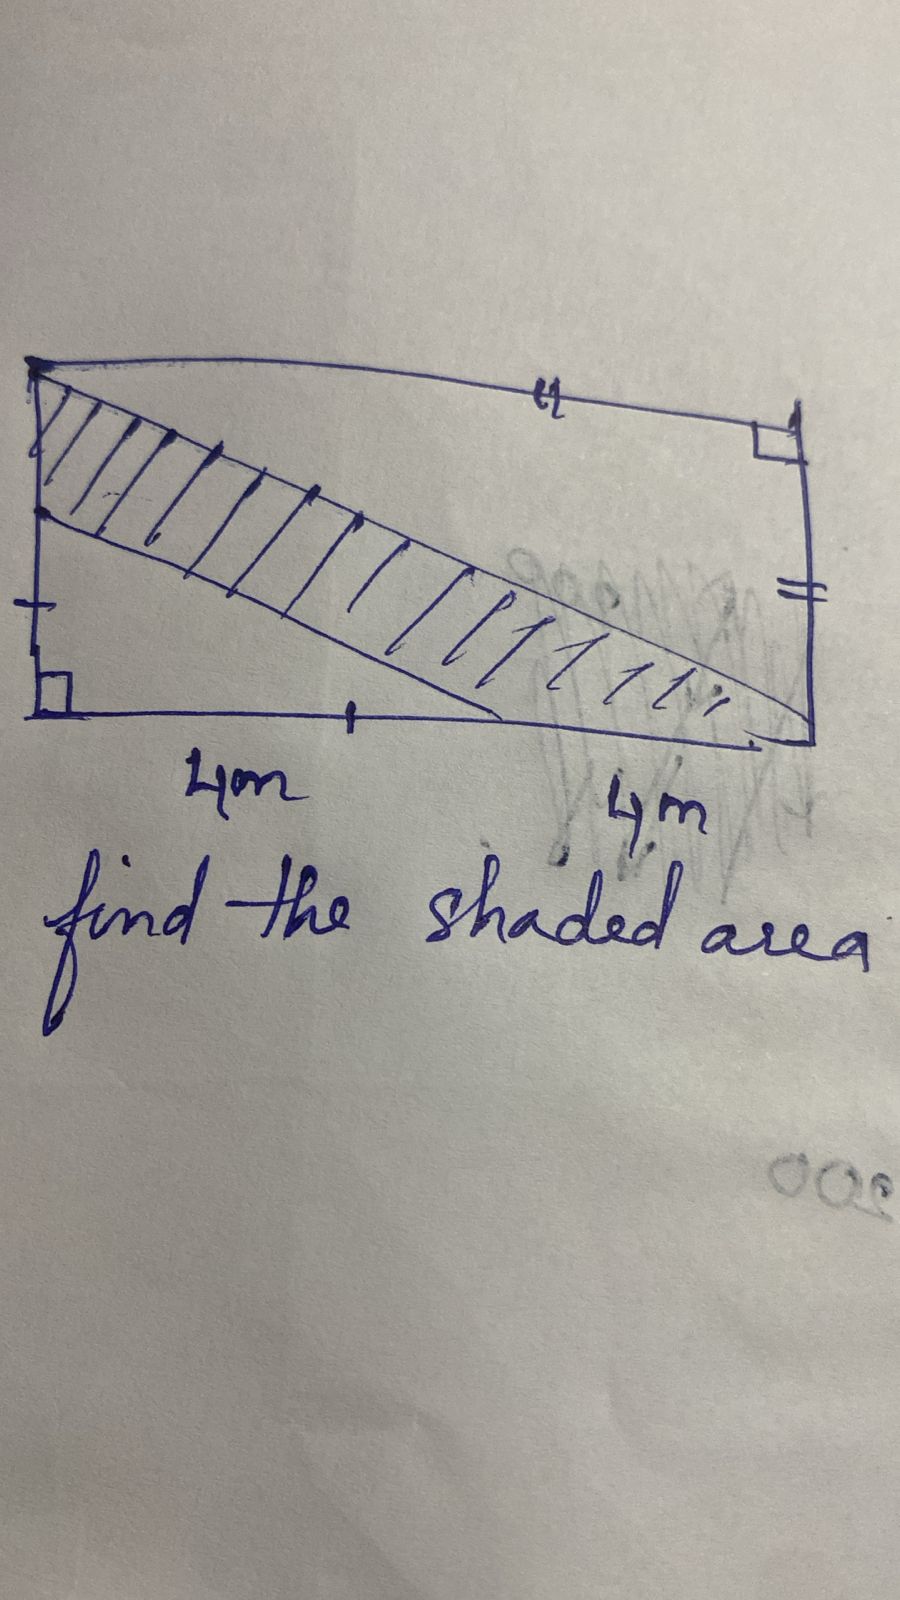 4m 4m
find the shaded area
200